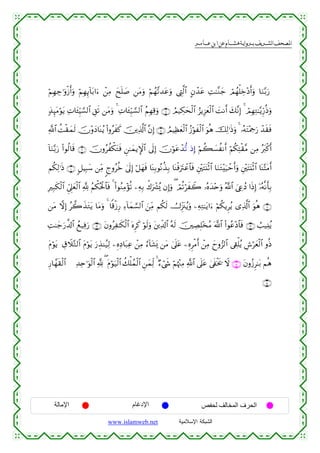 المصحف الشريف برواية هشام عن ابن عامر
رَبَّنَا وَأَدْخِلْهُمْ جَنَّٰتِ عَدْنٍ ٱلَّتِى وَعَدتَّهُمْ وَمَن صَلَحَ مِنْ ءَابَآئِهِمْ وَأَزْوَٰجِهِمْ
وَذُرِّيَّٰتِهِمْ ۚ إِنَّكَ أَنتَ ٱلْعَزِيزُ ٱلْحَكِيمُ ۝ وَقِهِمُ ٱلسَّيِّـَٔاتِ ۚ وَمَن تَقِ ٱلسَّيِّـَٔاتِ يَوْمَئِذٍ
فَقَدْ رَحِمْتَهُۥ ۚ وَذَٰلِكَ هُوَ ٱلْفَوْزُ ٱلْعَظِيمُ ۝ إِنَّ ٱلَّذِينَ كَفَرُوا۟ يُنَادَوْنَ لَمَقْتُ ٱللَّهِ
أَكْبَرُ مِن مَّقْتِكُمْ أَنفُسَكُمْ إِذ تُّدْعَوْنَ إِلَى ٱلْإِيمَٰنِ فَتَكْفُرُونَ ۝ قَالُوا۟ رَبَّنَآ
أَمَتَّنَا ٱثْنَتَيْنِ وَأَحْيَيْتَنَا ٱثْنَتَيْنِ فَٱعْتَرَفْنَا بِذُنُوبِنَا فَهَلْ إِلَىٰ خُرُوجٍ مِّن سَبِيلٍ ۝ ذَٰلِكُم
بِأَنَّهُۥٓ إِذَا دُعِىَ ٱللَّهُ وَحْدَهُۥ كَفَرْتُمْ ۖ وَإِن يُشْرَكْ بِهِۦ تُؤْمِنُوا۟ ۚ فَٱلْحُكْمُ لِلَّهِ ٱلْعَلِىِّ ٱلْكَبِيرِ
۝ هُوَ ٱلَّذِى يُرِيكُمْ ءَايَٰتِهِۦ وَيُنَزِّلُ لَكُم مِّنَ ٱلسَّمَآءِ رِزْقًا ۚ وَمَا يَتَذَكَّرُ إِلَّا مَن
يُنِيبُ ۝ فَٱدْعُوا۟ ٱللَّهَ مُخْلِصِينَ لَهُ ٱلدِّينَ وَلَوْ كَرِهَ ٱلْكَٰفِرُونَ ۝ رَفِيعُ ٱلدَّرَجَٰتِ
ذُو ٱلْعَرْشِ يُلْقِى ٱلرُّوحَ مِنْ أَمْرِهِۦ عَلَىٰ مَن يَشَآءُ مِنْ عِبَادِهِۦ لِيُنذِرَ يَوْمَ ٱلتَّلَاقِ ۝ يَوْمَ
هُم بَٰرِزُونَ ۝ لَا يَخْفَىٰ عَلَى ٱللَّهِ مِنْهُمْ شَىْءٌ ۚ لِّمَنِ ٱلْمُلْكُ ٱلْيَوْمَ ۖ لِلَّهِ ٱلْوَٰحِدِ ٱلْقَهَّارِ
۝
الحرف المخالف لحفص الإدغام الإمالة
www.islamweb.net الشبكة الإسلامية